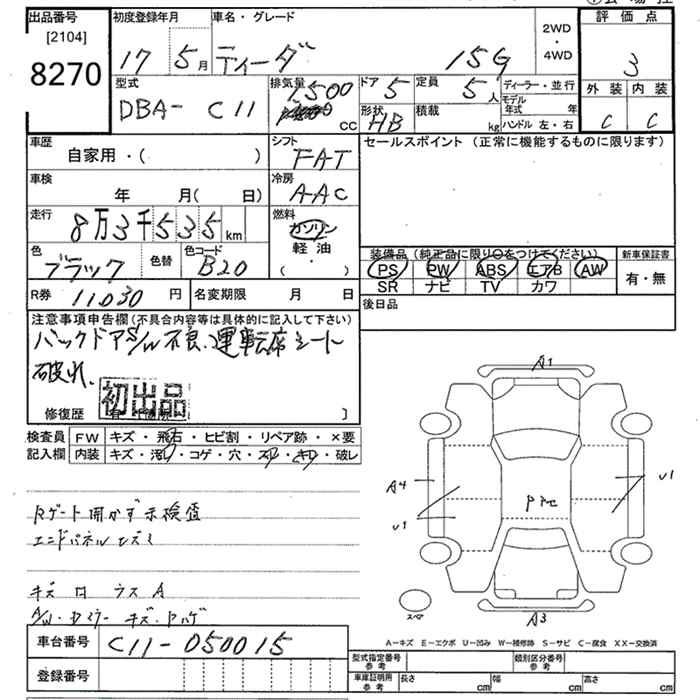 出品番号
[2104]
8270
初度登録年月
17 5月
車名・グレード
ティーダ 15G
2WD
・
4WD
評価点
3
外装 内装
C C
型式
DBA- C11
排気量
1500
cc
ドア 5
定員 5人
形状 HB
積載 kg
ディーラー・並行
モデル年式 年
ハンドル 左・右
車歴
自家用・( )
シフト
FAT
セールスポイント(正常に機能するものに限ります)
車検
年 月( 日)
冷房
AAC
走行
8万3千535km
燃料
ガソリン
軽油
( ・ )
色
ブラック
色替
色コード
B20
装備品(純正品に限り○をつけてください)
PS PW ABS エアB AW
SR ナビ TV カワ
新車保証書
有・無
R券 11030円
名変期限 月 日
後日品
注意事項申告欄(不具合内容等は具体的に記入して下さい)
バックドアS/W不良、運転席シート
破れ、
初出品
修復歴
検査員
記入欄
FW キズ・飛石・ヒビ割・リペア跡・×要
内装 キズ・汚れ・コゲ・穴・スレ・キレ・破レ
Rゲート開かず未検査
エンドパネル
キズ
A1
A4
U1
U1
A3
スペア
A-キズ E-エクボ U-凹み W-補修跡 S-サビ C-腐食 XX-交換済
車台番号 C11-050015
登録番号
型式指定番号
参考
類別区分番号
参考
車庫証明用
参考
長さ cm 幅 cm 高さ cm